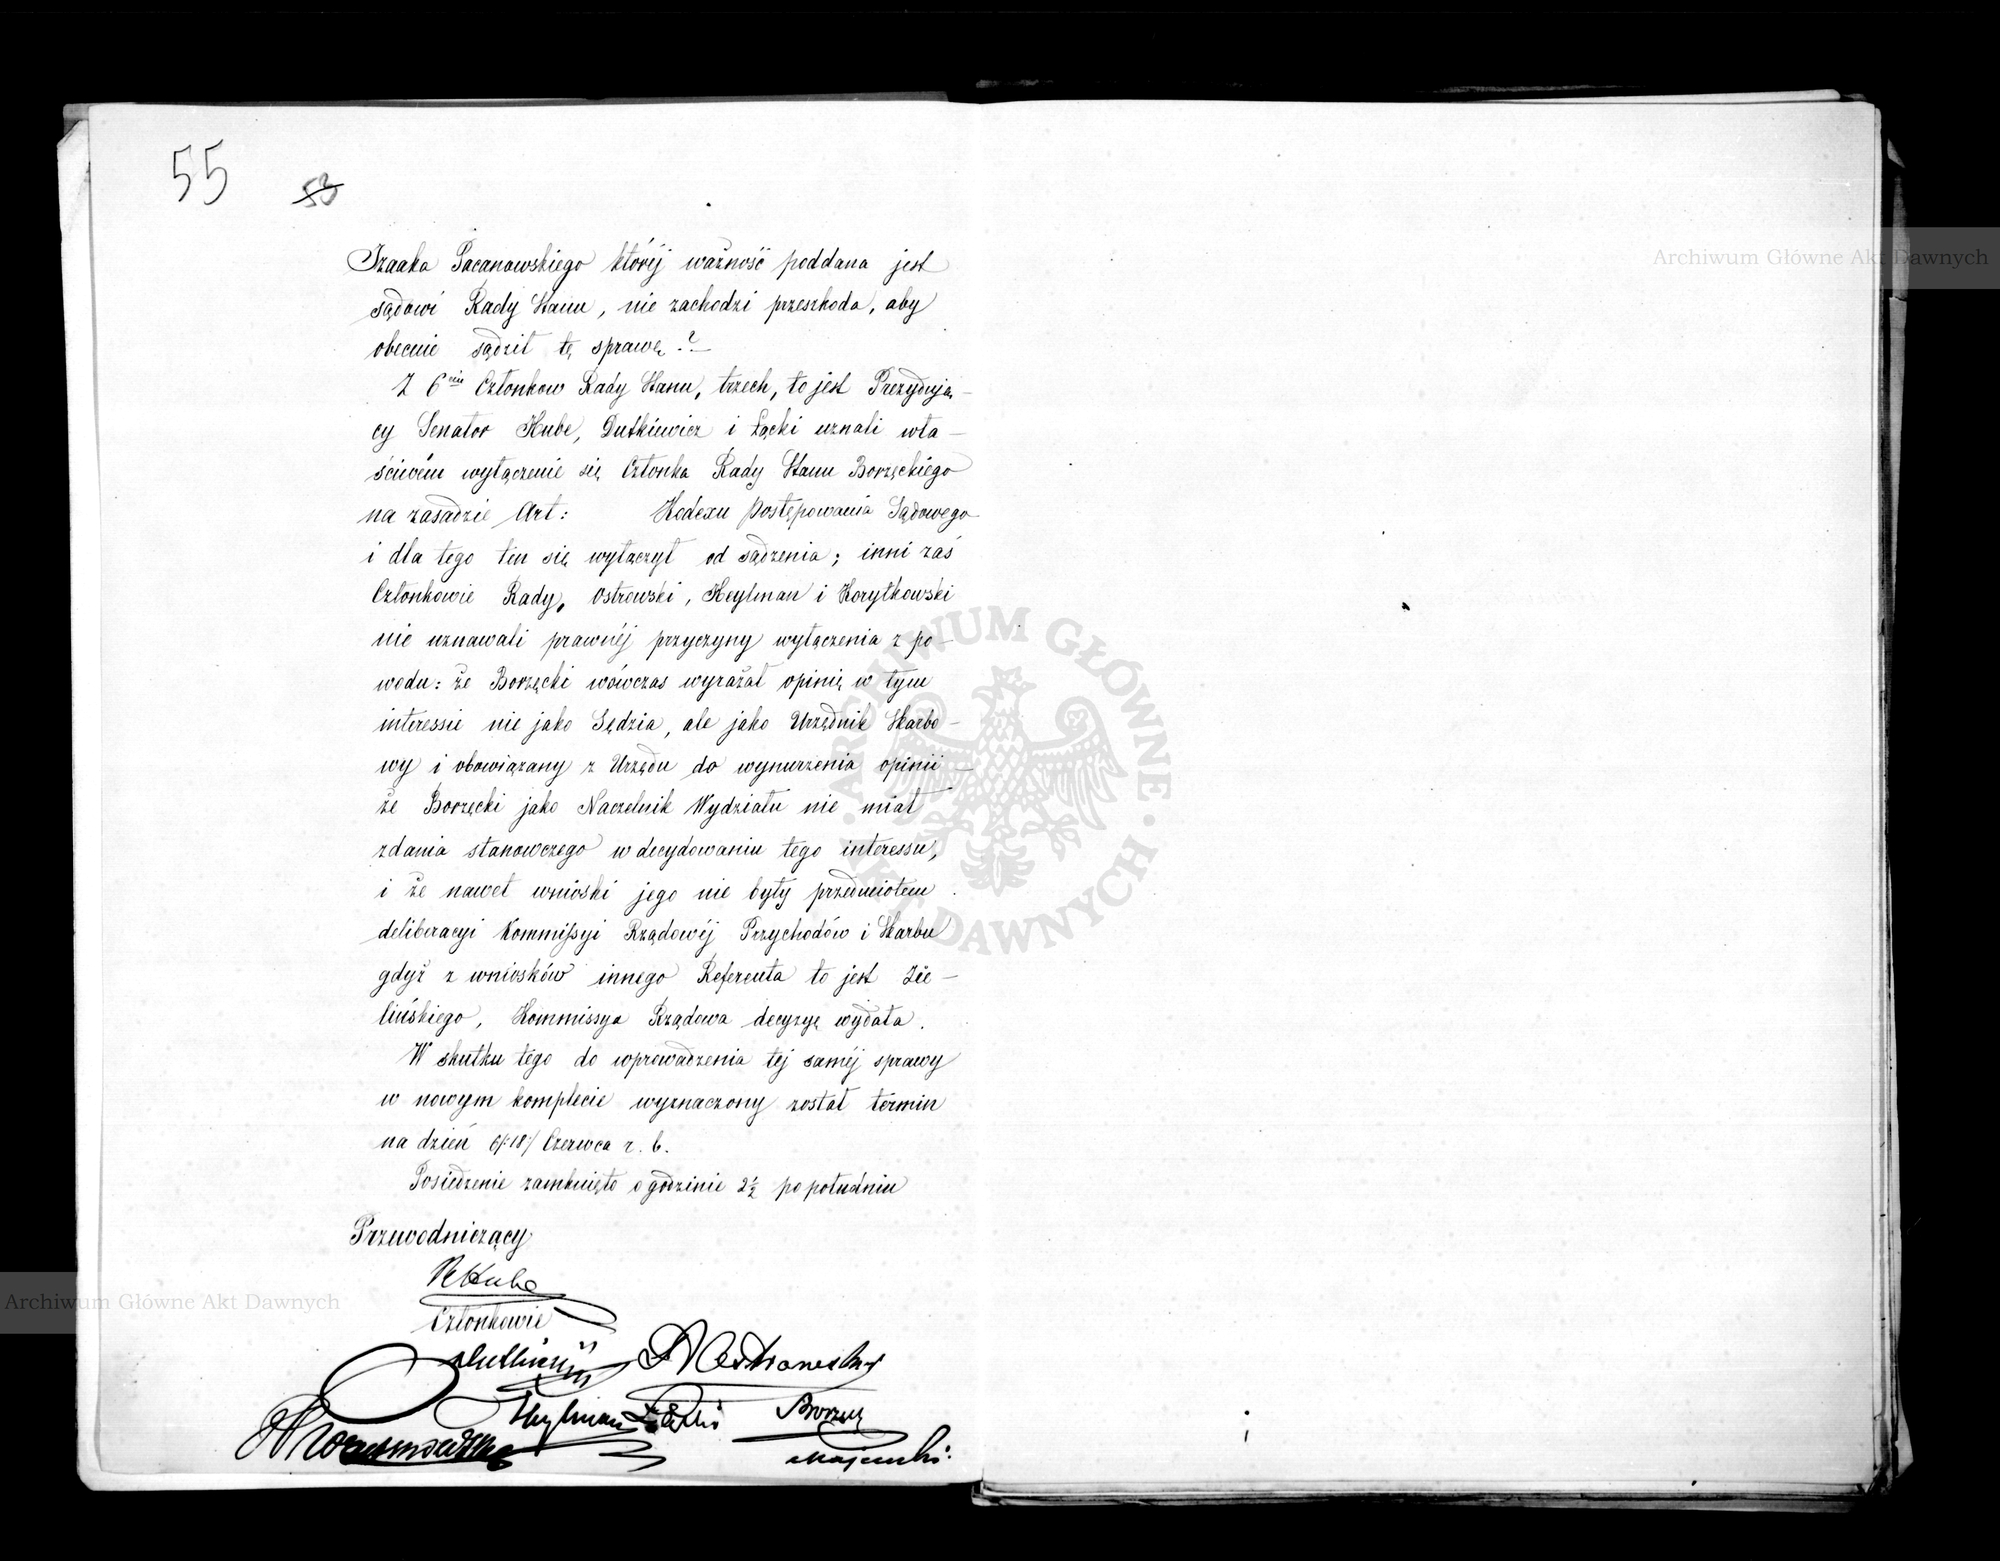 55
53
Izaaka Pacanowskiego któréj ważność poddana jest
sądowi Rady Stanu, nie zachodzi przeszkoda, aby
obecnie sądził tę sprawę.?—
Z 6ciu Członkow Rady Stanu, trzech, to jest Prezydują-
cy Senator Hube, Dutkiewicz i Łącki uznali wła-
ściwém wyłączenie się Członka Rady Stanu Borzęckiego
na zasadzie Art: Kodexu Postępowania Sądowego
i dla tego ten się wyłączył od sądzenia; inni zaś
Członkowie Rady, Ostrowski, Heylman i Korytkowski
nie uznawali prawnéj przyczyny wyłączenia z po-
wodu: że Borzęcki wówczas wyrażał opinię w tym
interessie nie jako Sędzia, ale jako Urzędnik Skarbo-
wy i obowiązany z Urzędu do wynurzenia opinii —
że Borzęcki jako Naczelnik Wydziału nie miał
zdania stanowczego w decydowaniu tego interessu,
i że nawet wnioski jego nie były przedmiotem
deliberacyi Kommissyi Rządowéj Przychodów i Skarbu
gdyż z wniosków innego Referenta to jest Zie-
lińskiego, Kommissya Rządowa decyzyę wydała.
W skutku tego do wprowadzenia tej saméj sprawy
w nowym komplecie wyznaczony został termin
na dzień 6/:18:/ Czerwca r. b.
Posiedzenie zamknięto o godzinie 2½ po południu
Przewodniczący
R Hube
Członkowie
Dutkiewicz Ostrowski
Heylman Łącki Borzęcki
Majewski.
Archiwum Główne Akt Dawnych
Archiwum Główne Akt Dawnych
ARCHIWUM GŁÓWNE AKT DAWNYCH